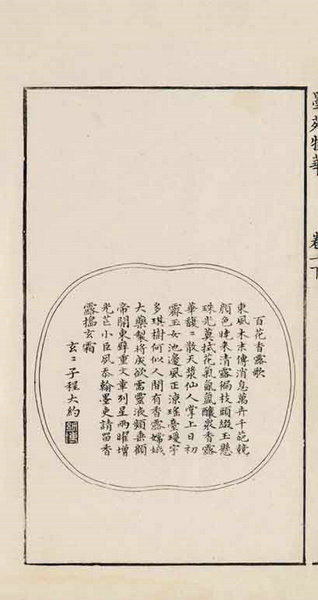 墨苑 華
卷
百花香露歌
東風木末傳消息萬卉千葩競
顏色曉來清露滴枝頭綴玉懸
珠光莫拭花氣氤氳釀衆香露
華馥〻散天漿仙人掌上日初
霽玉女池邊風正涼瑤臺瓊宇
多琪樹何似人間有香露嫦娥
大藥製將成欲需靈液頻垂顧
帝開東壁重文章列星兩曜增
光芒小臣夙忝翰墨吏請留香
露搗玄霜
玄〻子程大約